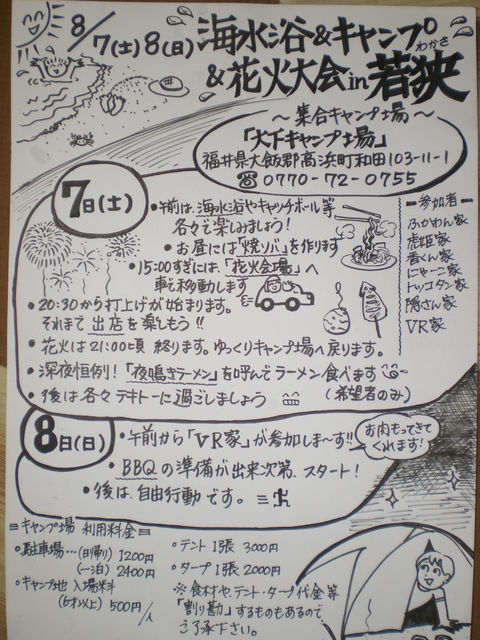 8/7(土)8(日) 海水浴&キャンプ
&花火大会in若狭
わかさ
〜集合キャンプ場〜
「大下キャンプ場」
福井県大飯郡高浜町和田103-11-1
☎0770-72-0755
7日(土)
・午前は、海水浴やキャッチボール等
各々で楽しみましょう!
・お昼には"焼ソバ"を作ります
・15:00すぎには、「花火会場」へ
車で移動します
・20:30から打上げが始まります。
それまで出店を楽しもう!!
・花火は21:00頃終ります。ゆっくりキャンプ場へ戻ります。
・深夜恒例!「夜鳴きラーメン」を呼んでラーメン食べます
(希望者のみ)
・後は各々テキトーに過ごしましょう
ー参加者ー
ふかわん家
虎姫家
香くん家
にゃーこ家
トッコタン家
隠さん家
VR家
8日(日)
・午前から「VR家」が参加しま〜す!!
お肉もってきてくれます!
・BBQの準備が出来次第、スタート!
・後は、自由行動です。
=キャンプ場 利用料金=
・駐車場…(日帰り)1200円
(一泊)2400円
・キャンプ地 入場料
(6才以上)500円/人
・テント1張 3000円
・タープ1張 2000円
※食材やテント・タープ代金等
「割り勘」するものもあるので
ご了承下さい。